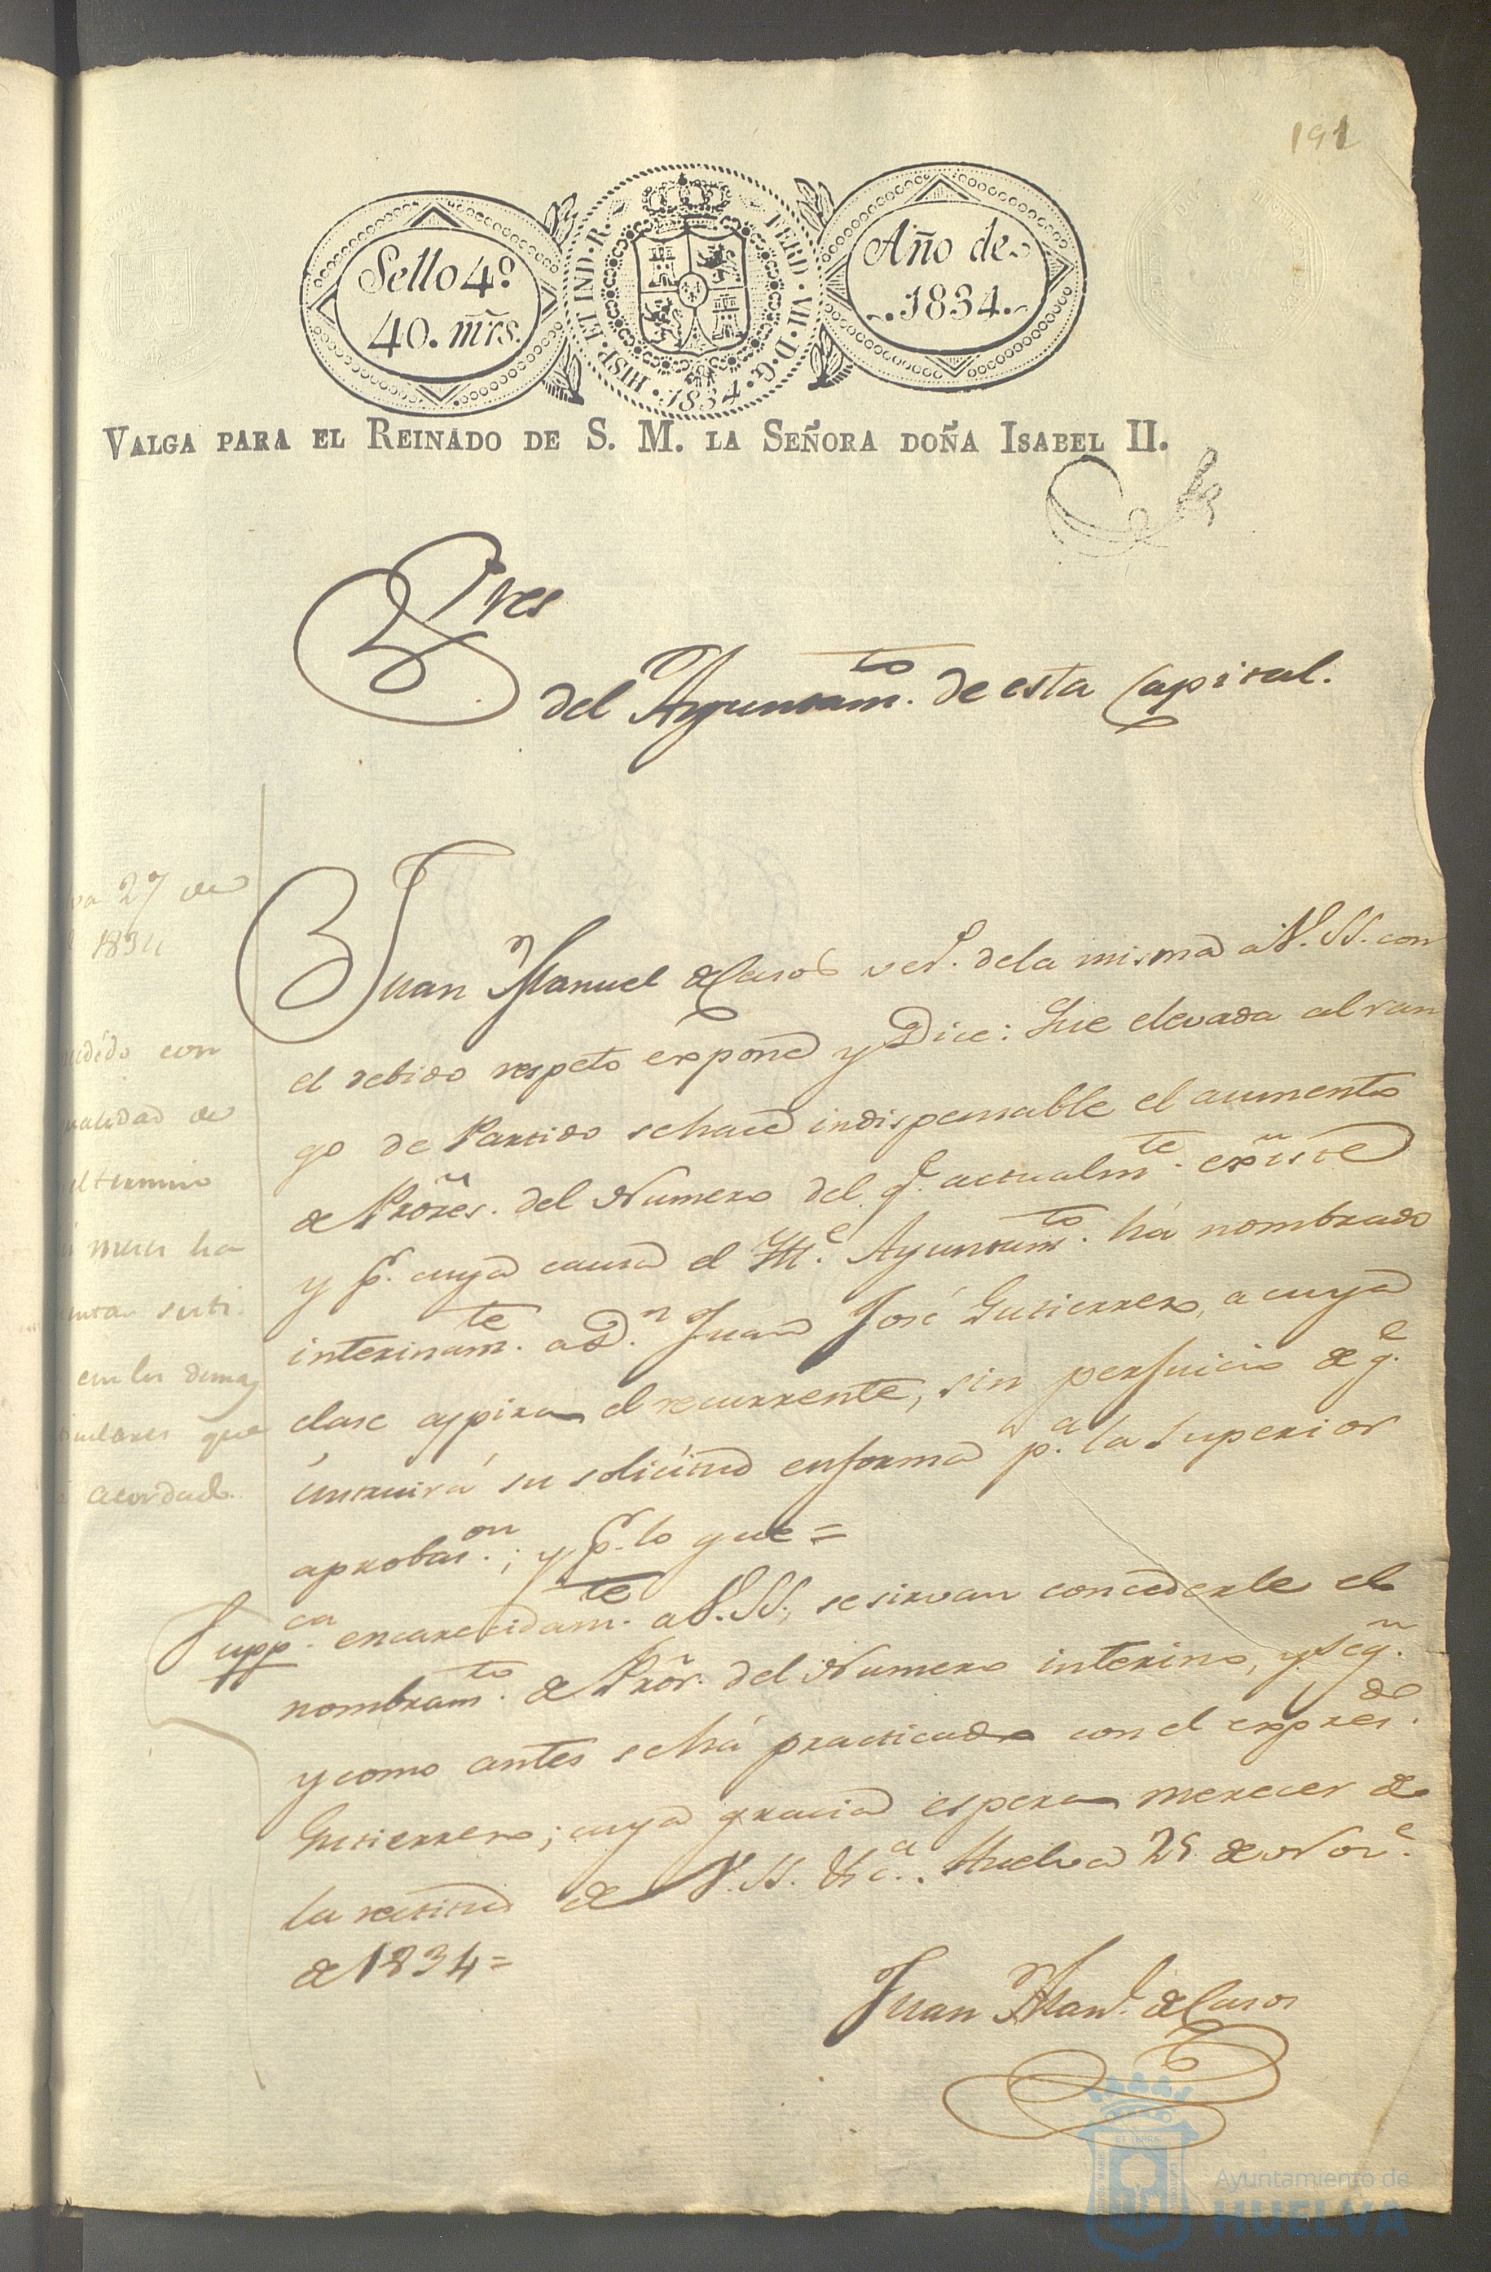 191
Sello 4º
40. mrs.
HISP. ET IND. R.
FERD. VII. D. G.
1834
Año de
1834.
VALGA PARA EL REINADO DE S. M. LA SEÑORA DOÑA ISABEL II.
Sres
del Ayuntam.to de esta Capital.
va 27 de
1834
Juan Manuel de Casos ve.º de la misma a V. SS. con
el debido respeto expone y Dice: Que elevada al ran
go de Partido se hace indispensable el aumento
de Prores. del Numero del q.e actualm.te existe
y p.r cuya causa el Yll.e Ayuntam.to há nombrado
interinam.te a D.n Juan José Gutierrez, a cuya
clase aspira el recurrente, sin perjuicio de q.e
instruirá su solicitud en forma p.a la Superior
aprobas.on; y p.r lo que =
Supp.ca encarecidam.te a V. SS., se sirvan concederle el
nombram.to de Pror. del Numero interino, y seg.n
y como antes se há practicado con el expres.do
Gutierrez; cuya gracia espera merecer de
la rectitud de V. SS. &c.a. Huelva 25 de Nov.e
de 1834 =
Juan Man.l de Casos
con
de
termino
ha
en los demas
que
acordado.
Ayuntamiento de
HUELVA